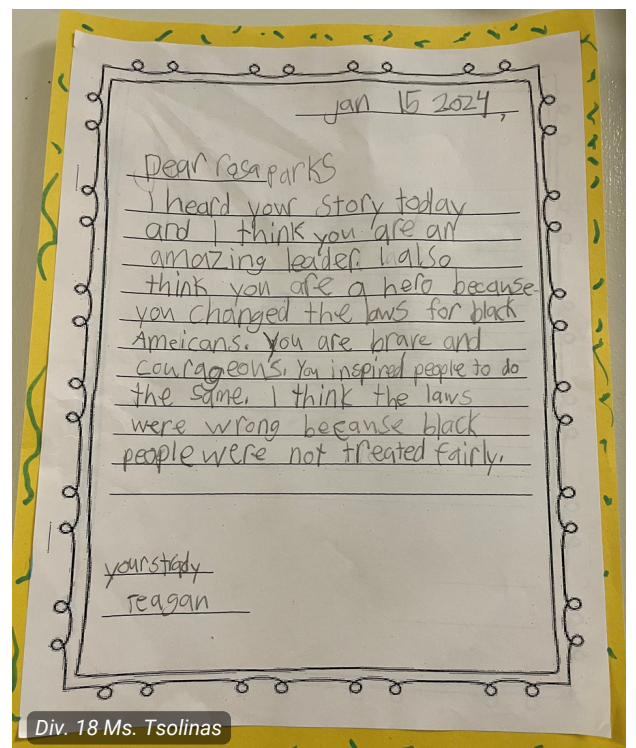 jan 15 2024,
Dear rosa parks
I heard your story today
and I think you are an
amazing leader. I also
think you are a hero because
you changed the laws for black
Ameicans. You are brave and
courageons. You inspired people to do
the same. I think the laws
were wrong because black
people were not treated fairly.
reagan
Div. 18 Ms. Tsolinas